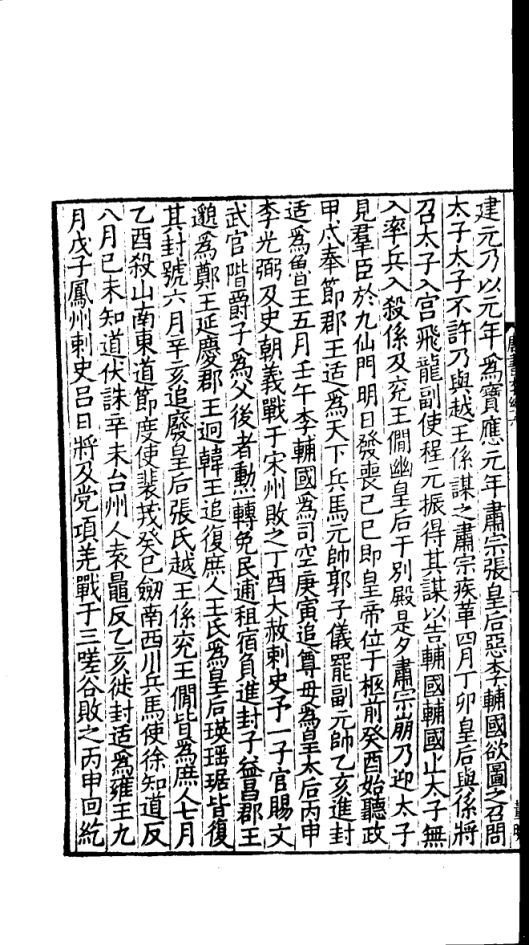 建元乃以元年爲寶應元年肅宗張皇后惡李輔國欲圖之召問
太子太子不許乃與越王係謀之肅宗疾革四月丁卯皇后與係將
召太子入宮飛龍副使程元振得其謀以告輔國輔國止太子無
入率兵入殺係及兖王僩幽皇后于別殿是夕肅宗崩乃迎太子
見羣臣於九仙門明日發喪己巳即皇帝位于柩前癸酉始聽政
甲戌奉節郡王适爲天下兵馬元帥郭子儀罷副元帥乙亥進封
适爲魯王五月壬午李輔國爲司空庚寅追尊母爲皇太后丙申
李光弼及史朝義戰于宋州敗之丁酉大赦刺史予一子官賜文
武官階爵子爲父後者勲一轉免民逋租宿負進封子益昌郡王
邈爲鄭王延慶郡王迥韓王追復庶人王氏爲皇后瑛瑶琚皆復
其封號六月辛亥追廢皇后張氏越王係兖王僩皆爲庶人七月
乙酉殺山南東道節度使裴茙癸巳劒南西川兵馬使徐知道反
八月已未知道伏誅辛未台州人袁鼂反乙亥徙封适爲雍王九
月戊子鳳州刺史吕日將及党項羌戰于三嗟谷敗之丙申回紇